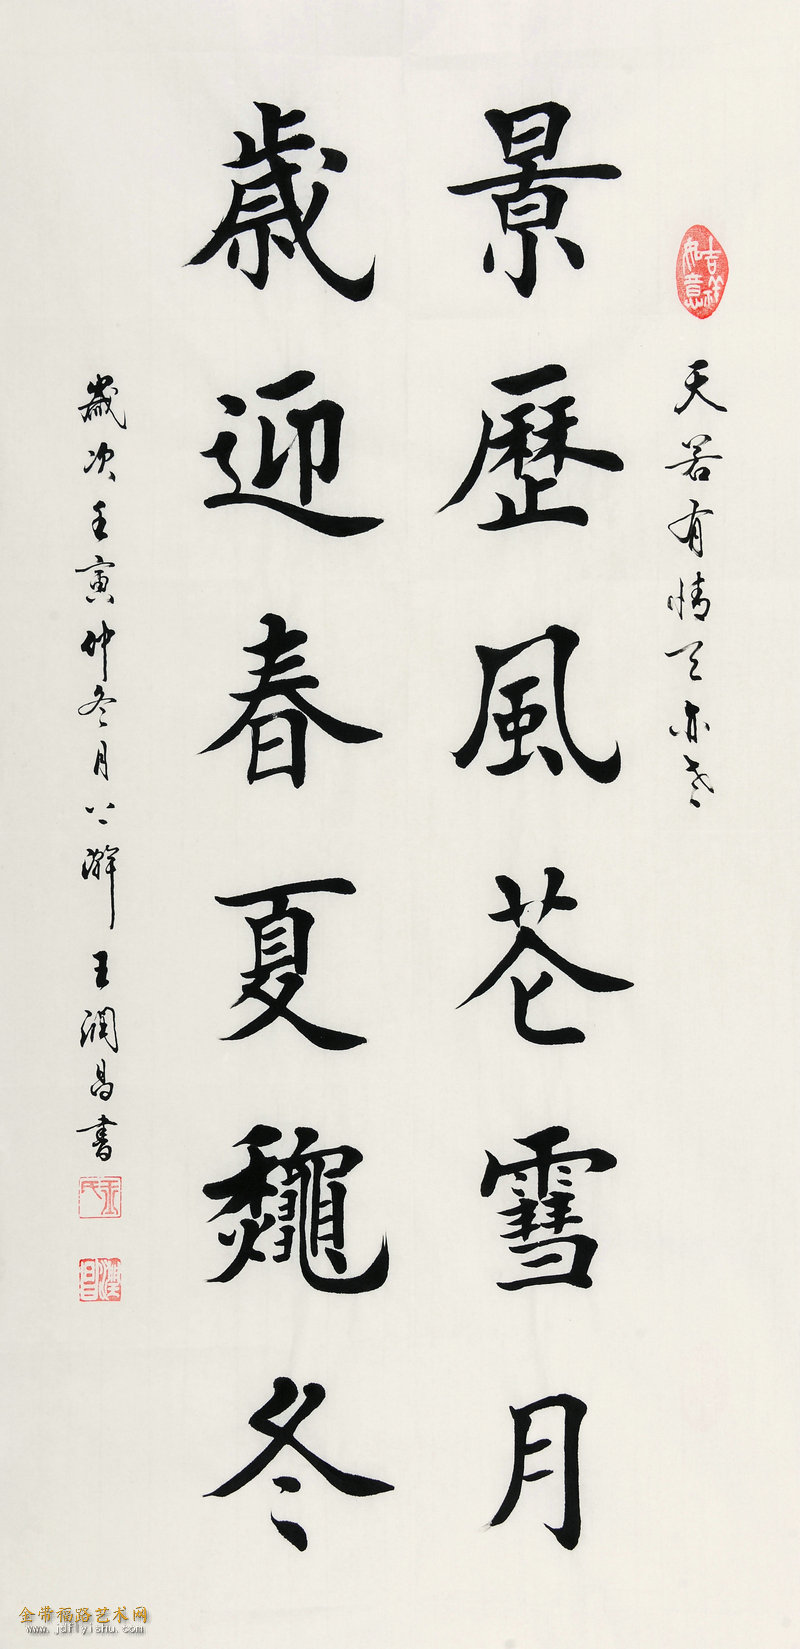 吉祥如意
天若有情天亦老
景歷風花雪月
歳迎春夏龝冬
歲次壬寅仲冬月上澣王潤昌書
王氏
潤昌
金带福路艺术网
www.jdflyishu.com